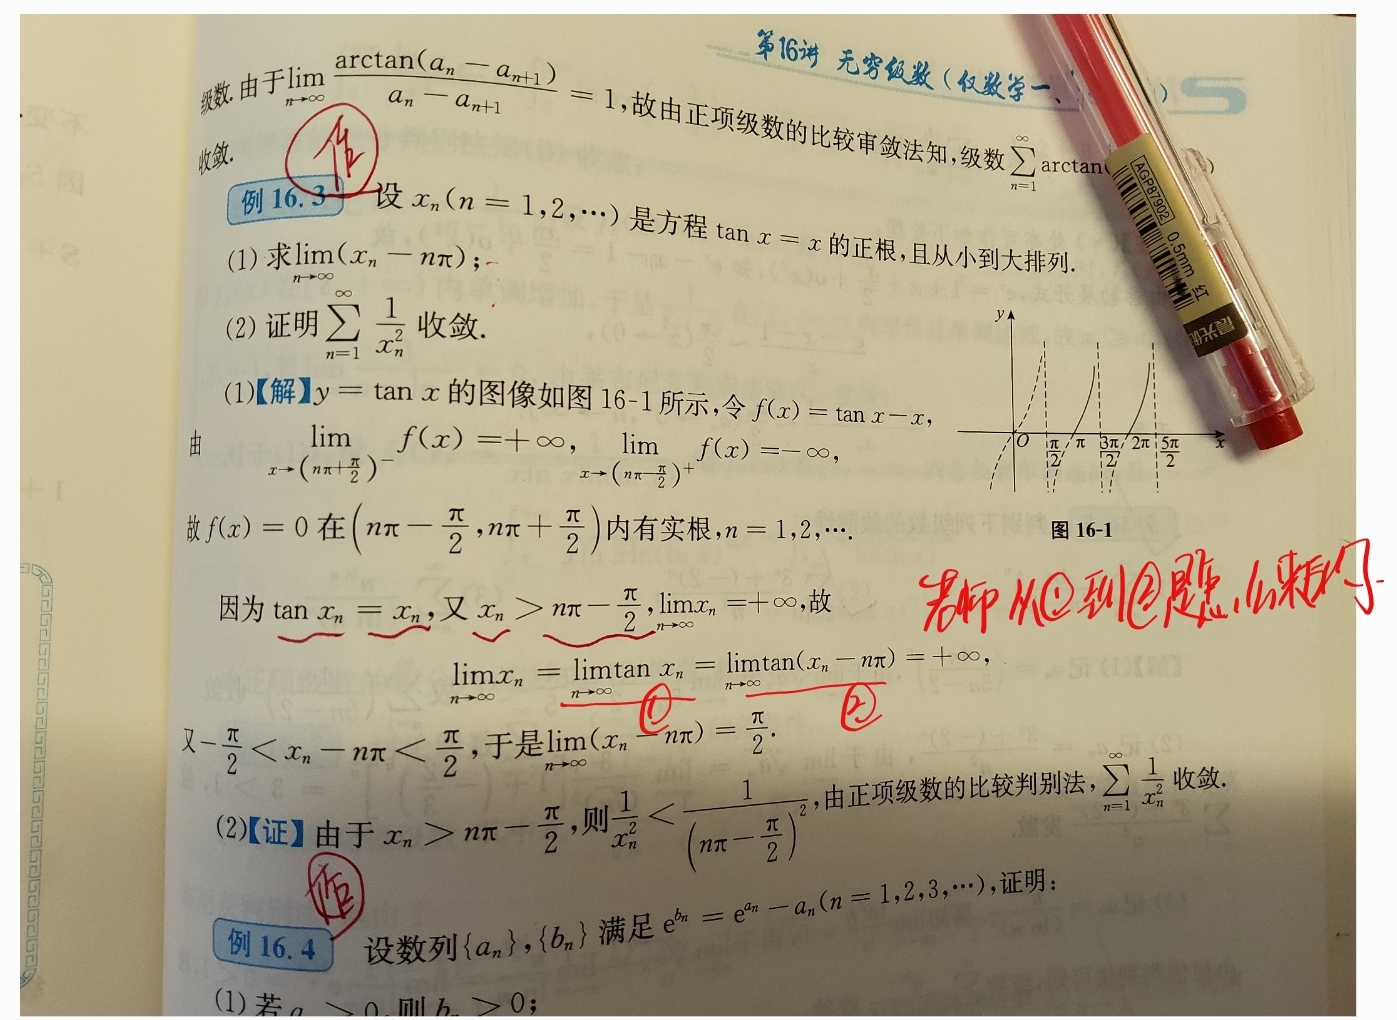 第16讲 无穷级数(仅数学一、
级数.由于$\lim_{n\to\infty}\frac{\arctan(a_n-a_{n+1})}{a_n-a_{n+1}}=1$,故由正项级数的比较审敛法知,级数$\sum_{n=1}^{\infty}$arctan(
收敛.
例16.3 设 $x_n$(n=1,2,…)是方程 tan x=x 的正根,且从小到大排列.
(1)求$\lim_{n\to\infty}(x_n-n\pi)$;
(2)证明$\sum_{n=1}^{\infty}\frac{1}{x_n^2}$收敛.
(1)【解】y=tan x 的图像如图16-1所示,令 f(x)=tan x-x,
由 $\lim_{x\to(n\pi+\frac{\pi}{2})^-}f(x)=+\infty$,$\lim_{x\to(n\pi-\frac{\pi}{2})^+}f(x)=-\infty$,
y
O π/2 π 3π/2 2π 5π/2 x
图16-1
故 f(x)=0 在$\left(n\pi-\frac{\pi}{2},n\pi+\frac{\pi}{2}\right)$内有实根,n=1,2,….
因为 $\tan x_n=x_n$,又 $x_n>n\pi-\frac{\pi}{2}$,$\lim_{n\to\infty}x_n=+\infty$,故
老师从①到②是怎么来的
$\lim_{n\to\infty}x_n=\lim_{n\to\infty}\tan x_n=\lim_{n\to\infty}\tan(x_n-n\pi)=+\infty$,
① ②
又$-\frac{\pi}{2}<x_n-n\pi<\frac{\pi}{2}$,于是$\lim_{n\to\infty}(x_n-n\pi)=\frac{\pi}{2}$.
(2)【证】由于 $x_n>n\pi-\frac{\pi}{2}$,则$\frac{1}{x_n^2}<\frac{1}{\left(n\pi-\frac{\pi}{2}\right)^2}$,由正项级数的比较判别法,$\sum_{n=1}^{\infty}\frac{1}{x_n^2}$收敛.
例16.4 设数列{$a_n$},{$b_n$}满足 $e^{b_n}=e^{a_n}-a_n$(n=1,2,3,…),证明:
(1)若 $a_n>0$,则 $b_n>0$;
AGP87902 0.5mm 红
晨光优